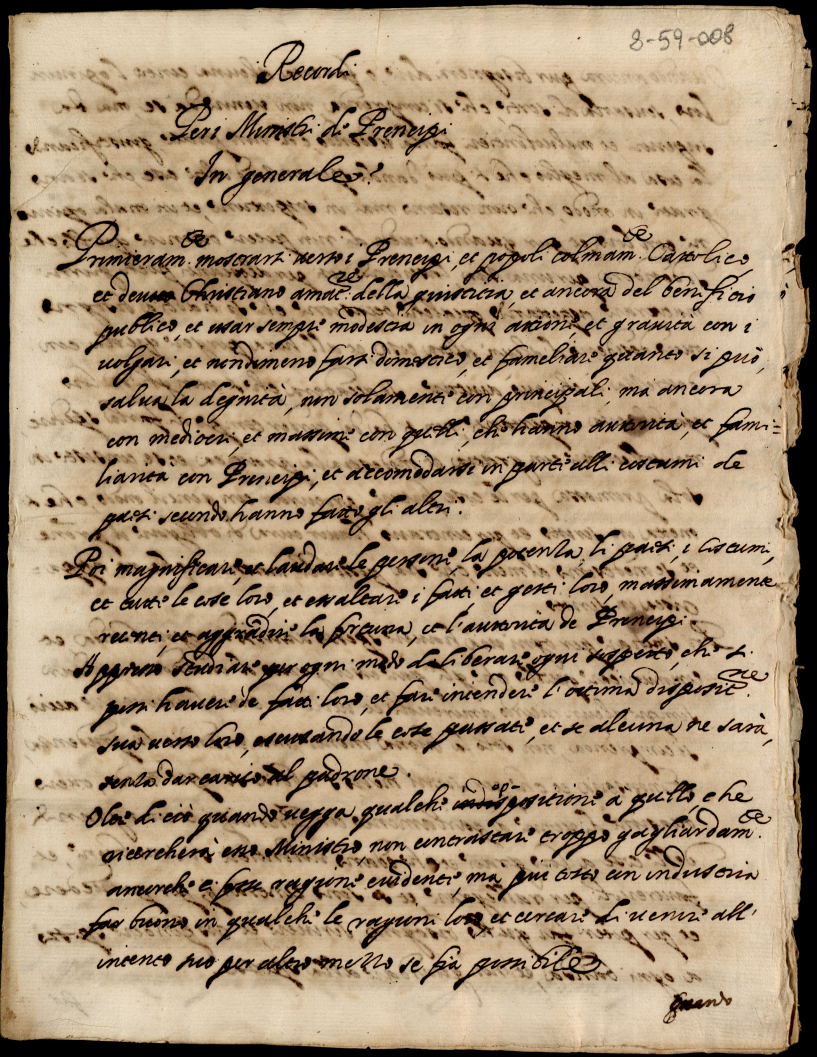 8-59-008
Recordi
Per i Ministri de Prencipi
In generale.
Primieram.te mostrarsi verso i Prencipi, et popoli colmam.te Cattolico,
et devoto Christiano amat.re della giusticia, et ancora del beneficio
publico, et usar sempre modestia in ogni attione, et gravità con i
volgari, et nondimeno farsi domestico, et fameliare quanto si può,
salva la degnità, non solamente con principali, ma ancora
con mediocri, et massime con quelli, che hanno autorità, et fami=
liarità con Prencipi, et accomodarsi in parte alli costumi de
paesi secondo hanno fatto gli altri.
Poi magnificare, et laudare le persone, la potenza, li paesi, i costumi,
et tutte le cose loro, et essaltare i fatti et gesti loro, massimamente
recenti, et aggrādire la fortuna, et l'autorità de Prencipi.
Appresso studiare per ogni modo de liberare ogni sospetto, che si
possi havere de fatti loro, et fare intendere l'ottima disposit.ne
sua verso loro, escusando le cose passate, et se alcuna ne sarà,
senza dar carico al padrone.
Oltre di ciò quando vegga qualche indispositione a quello che
ricercherà esso Ministro non contrastare troppo gagliardam.te
ancorche c'è fosse ragione evidente, ma più tosto con industria
far buone in qualche le ragioni loro, et cercare di venire all'
intento suo per altro mezzo se fia possibile
Quando